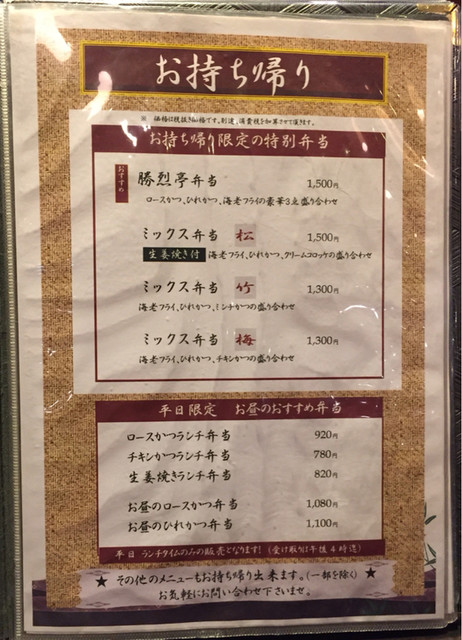 お持ち帰り
※ 価格は税抜き価格です。別途、消費税を加算させて頂きます。
お持ち帰り限定の特別弁当
おすすめ
勝烈亭弁当 1,500円
ロースかつ、ひれかつ、海老フライの豪華3点盛り合わせ
ミックス弁当 松 1,500円
生姜焼き付 海老フライ、ひれかつ、クリームコロッケの盛り合わせ
ミックス弁当 竹 1,300円
海老フライ、ひれかつ、ミンチかつの盛り合わせ
ミックス弁当 梅 1,300円
海老フライ、ひれかつ、チキンかつの盛り合わせ
平日限定 お昼のおすすめ弁当
ロースかつランチ弁当 920円
チキンかつランチ弁当 780円
生姜焼きランチ弁当 820円
お昼のロースかつ弁当 1,080円
お昼のひれかつ弁当 1,100円
平日 ランチタイムのみの販売となります! (受け取りは午後4時迄)
★ その他のメニューもお持ち帰り出来ます。(一部を除く) ★
お気軽にお問い合わせ下さいませ。